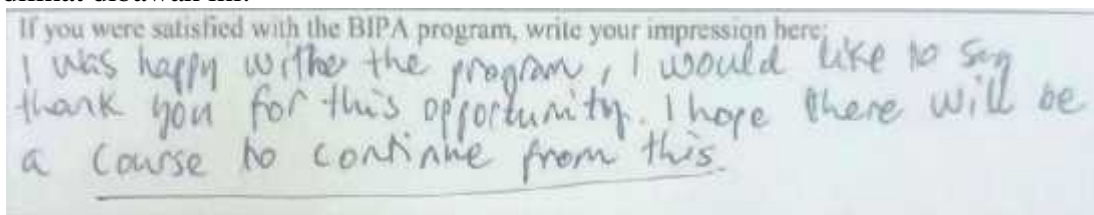 If you were satisfied with the BIPA program, write your impression here:
I was happy withe the program, I would like to say
thank you for this opportunity. I hope there will be
a course to continue from this.